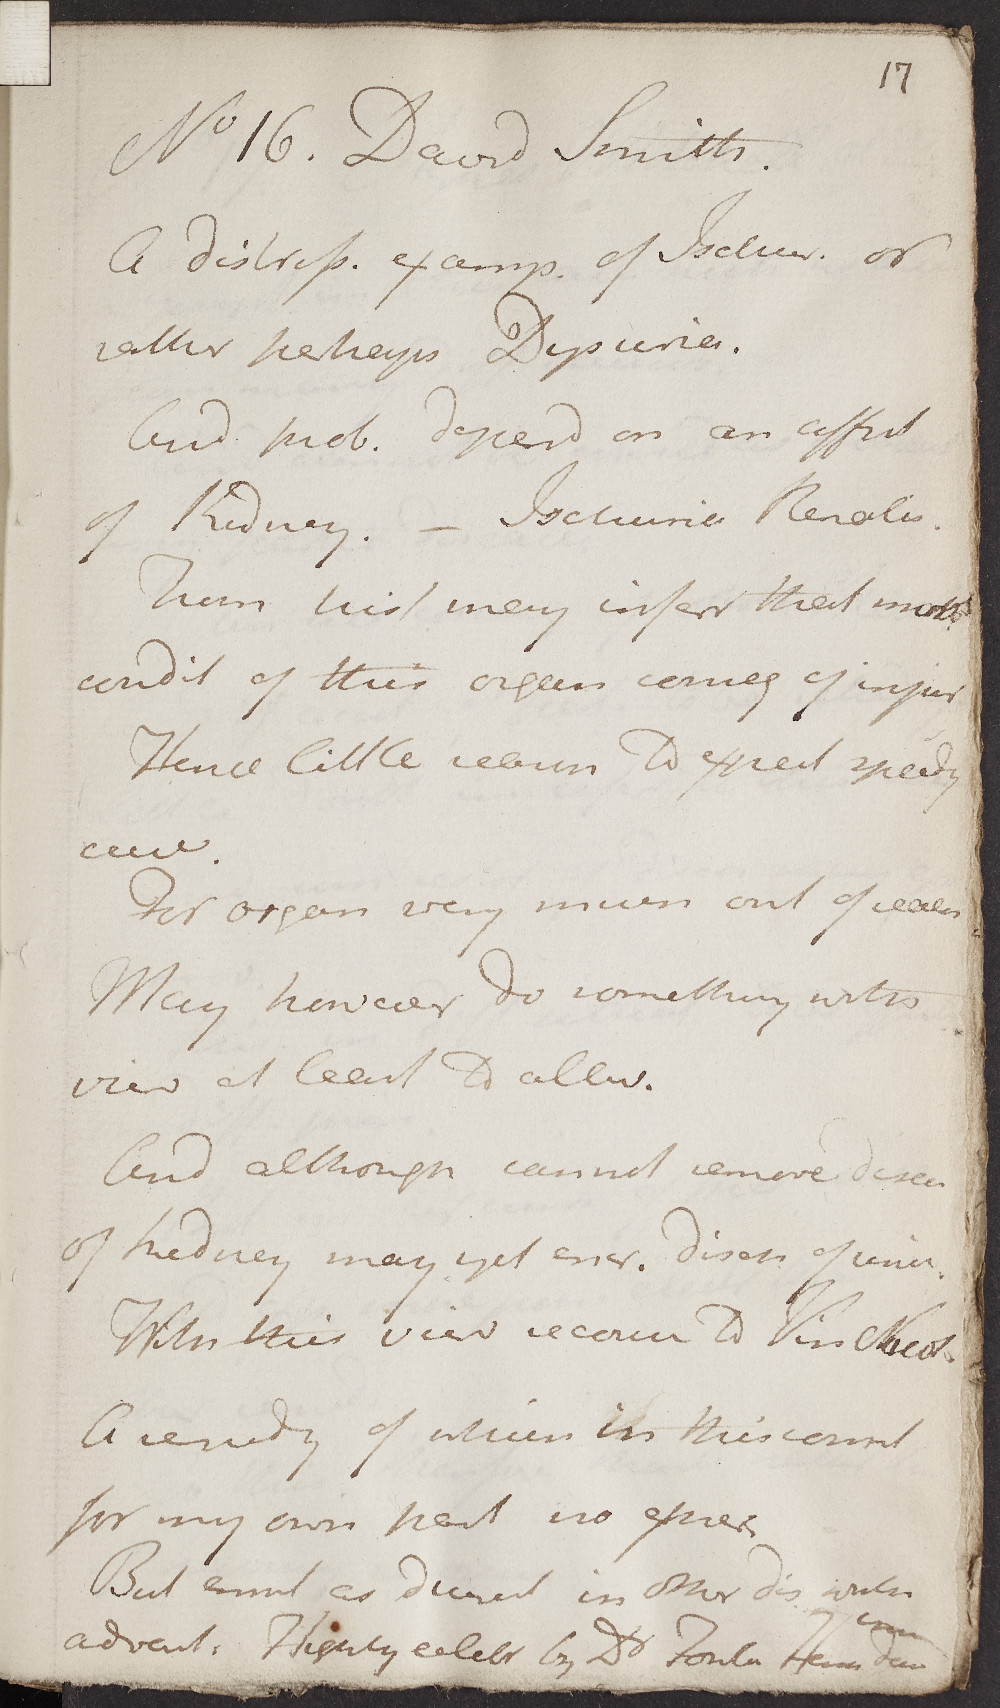 17
No 16. David Smith.
A distress. examp. of Ischur. or
rather perhaps Dysuria.
And prob. depend on an affect
of Kidney. — Ischuria Renalis.
From hist may inferr that morb
condit of this organ conseq of injur
Hence little reason to expect speedy
cure.
For organ very much out of reach
May however do something with
view at least to allev.
And although cannot remove disea
of kidney may yet incr. disch of urin.
With this view recourse to Vin Nicot.
A remedy of which in this complt
for my own part no exper
But empl as diuret in other dis with
advant. Highly celebr by Dr Fowler